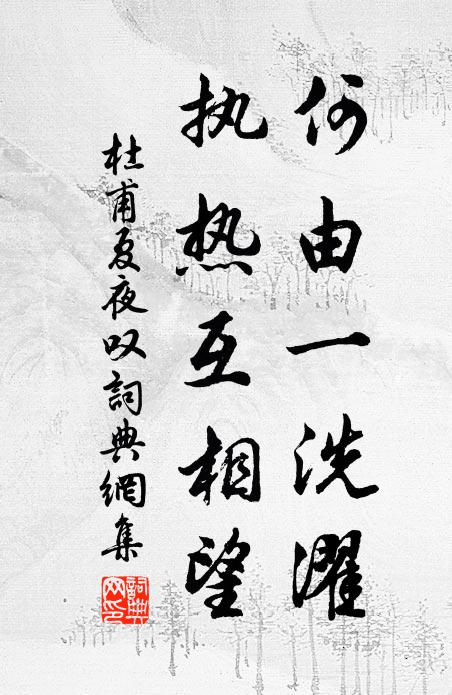 何由一洗濯
执热互相望
杜甫夏夜叹詞典網集
詞典網印